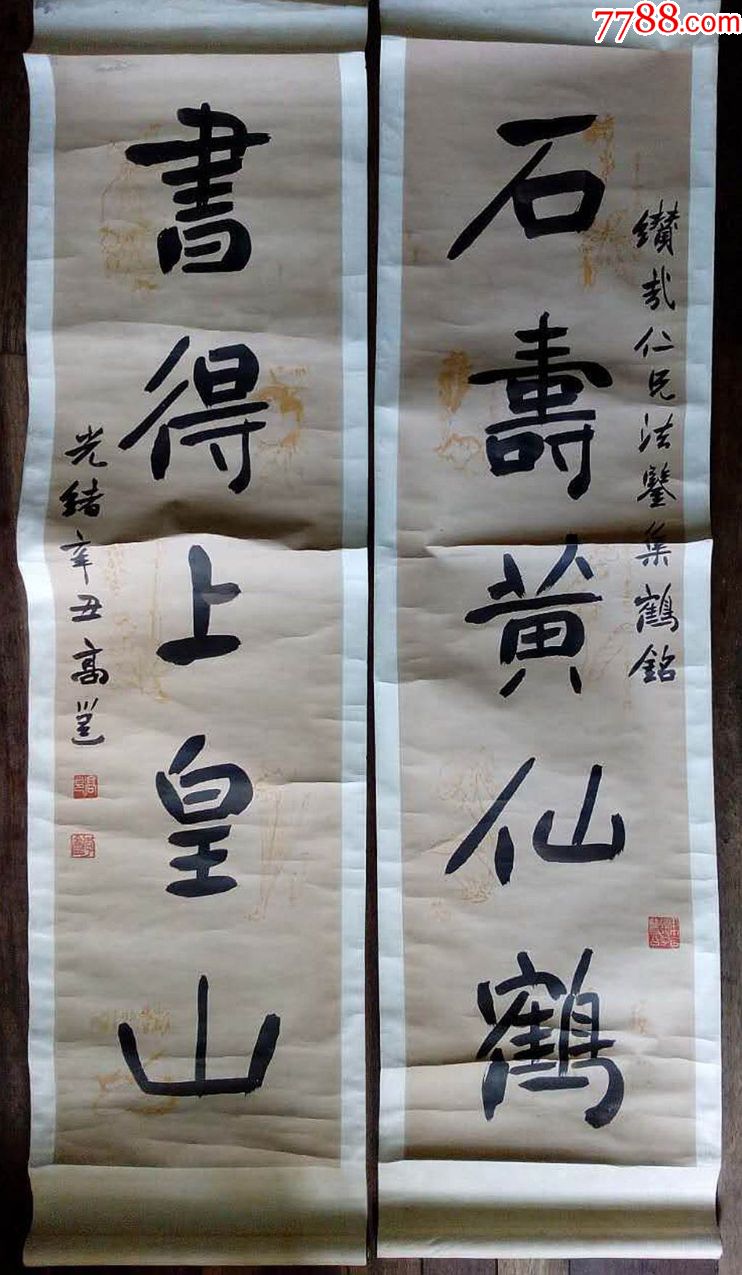 7788.com
石壽黄仙鶴
纘哉仁兄法鑒集鶴銘
書得上皇山
光緒辛丑高邕